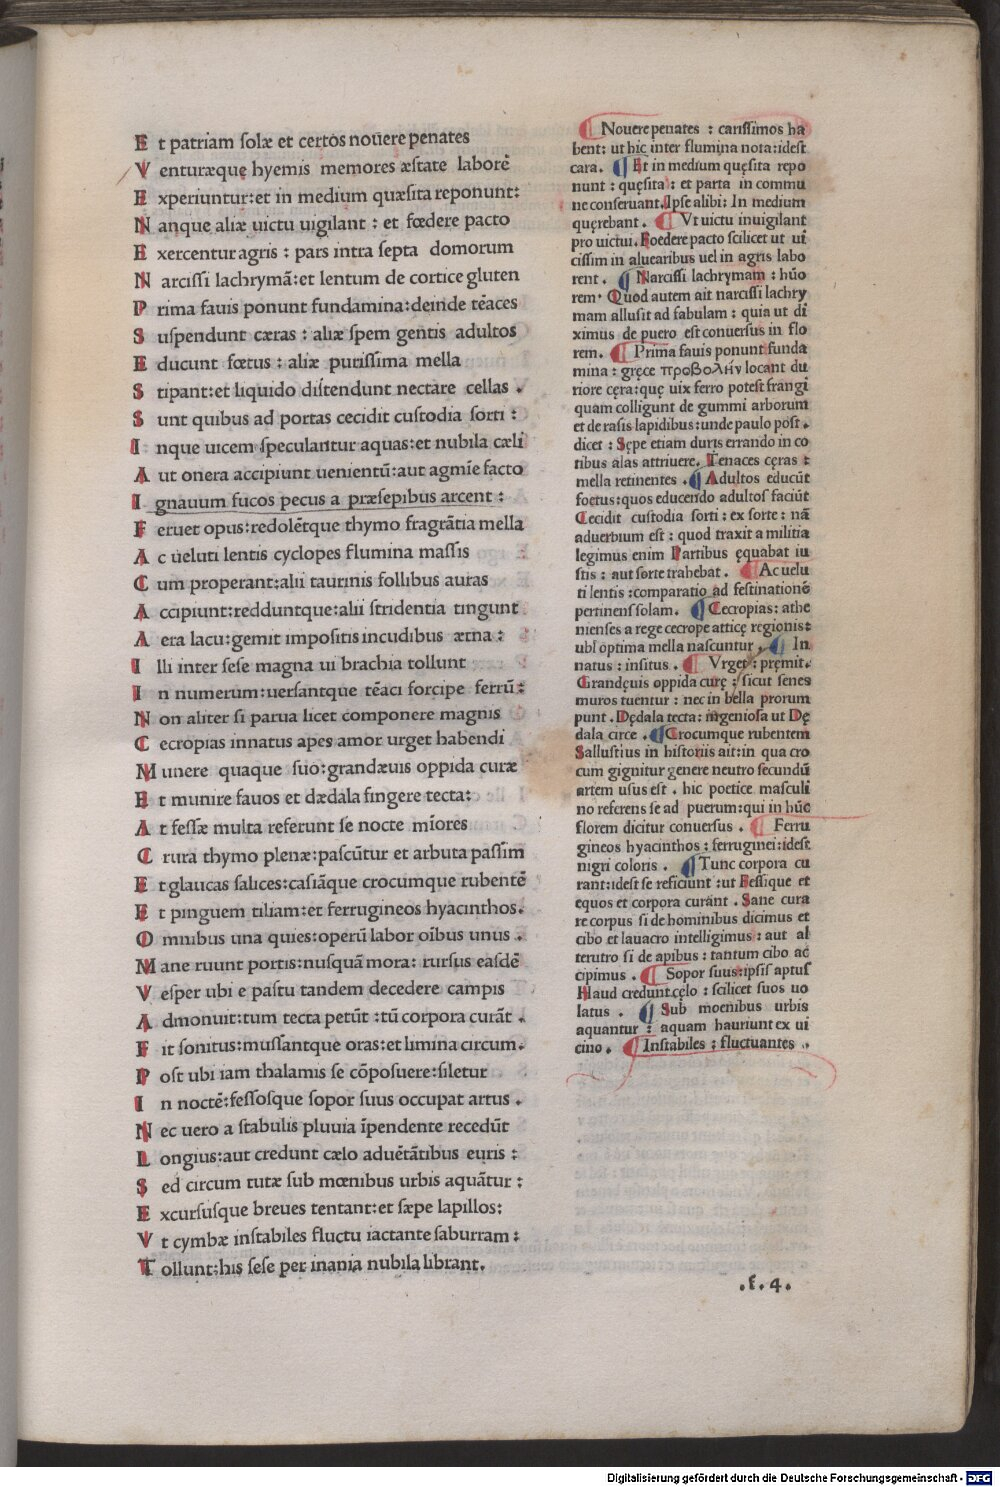 Et patriam solæ et certos nouere penates
Venturæque hyemis memores æstate laborē
Experiuntur:et in medium quæsita reponunt:
Nanque aliæ uictu uigilant : et fœdere pacto
Exercentur agris : pars intra septa domorum
Narcissi lachrymā:et lentum de cortice gluten
Prima fauis ponunt fundamina:deinde tēaces
Suspendunt cæras : aliæ spem gentis adultos
Educunt fœtus : aliæ purissima mella
Stipant:et liquido distendunt nectare cellas .
Sunt quibus ad portas cecidit custodia sorti :
Inque uicem speculantur aquas:et nubila cæli
Aut onera accipiunt uenientū:aut agmīe facto
Ignauum fucos pecus a præsepibus arcent :
Feruet opus:redolētque thymo fragrātia mella
Ac ueluti lentis cyclopes flumina massis
Cum properant:alii taurinis follibus auras
Accipiunt:redduntque:alii stridentia tingunt
Aera lacu:gemit impositis incudibus ætna :
Illi inter sese magna ui brachia tollunt
In numerum:uersantque tēaci forcipe ferrū:
Non aliter si parua licet componere magnis
Cecropias innatus apes amor urget habendi
Munere quaque suo:grandæuis oppida curæ
Et munire fauos et dædala fingere tecta:
At fessæ multa referunt se nocte mīores
Crura thymo plenæ:pascūtur et arbuta passim
Et glaucas salices:casiāque crocumque rubentē
Et pinguem tiliam:et ferrugineos hyacinthos.
Omnibus una quies:operū labor oībus unus .
Mane ruunt portis:nusquā mora: rursus easdē
Vesper ubi e pastu tandem decedere campis
Admonuit:tum tecta petūt :tū corpora curāt .
Fit sonitus:mussantque oras:et limina circum.
Post ubi iam thalamis se cōposuere:siletur
In noctē:fessosque sopor suus occupat artus .
Nec uero a stabulis pluuia īpendente recedūt
Longius:aut credunt cælo aduētātibus euris :
Sed circum tutæ sub mœnibus urbis aquātur :
Excursusque breues tentant:et sæpe lapillos:
Vt cymbæ instabiles fluctu iactante saburram :
Tollunt:his sese per inania nubila librant.
¶ Nouere penates : carissimos ha
bent: ut hic inter flumina nota:idest
cara. ¶ Et in medium quęsita repo
nunt : quęsita : et parta in commu
ne conseruant.Ipse alibi: In medium
quęrebant . ¶ Vt uictu inuigilant
pro uictui.Foedere pacto scilicet ut ui
cissim in aluearibus uel in agris labo
rent . ¶ Narcissi lachrymam : hūo
rem. Quod autem ait narcissi lachry
mam allusit ad fabulam : quia ut di
ximus de puero est conuersus in flo
rem. ¶ Prima fauis ponunt funda
mina : gręce προβολήν locant du
riore cęra:quę uix ferro potest frangi
quam colligunt de gummi arborum
et de rasis lapidibus:unde paulo post .
dicet : Sępe etiam duris errando in co
tibus alas attriuere. Tenaces cęras :
mella retinentes . ¶ Adultos educūt
foetus:quos educendo adultos faciūt
Cecidit custodia sorti : ex sorte : nā
aduerbium est : quod traxit a militia
legimus enim Partibus ęquabat iu
stis : aut sorte trahebat . ¶ Ac uelu
ti lentis :comparatio ad festinationē
pertinens solam. ¶ Cecropias: athe
nienses a rege cecrope atticę regionis:
ubi optima mella nascuntur . ¶ In
natus : insitus . ¶ Vrget : pręmit.
Grandęuis oppida curę : sicut senes
muros tuentur : nec in bella prorum
punt . Dędala tecta: ingeniosa ut Dę
dala circe . ¶ Crocumque rubentem
Sallustius in historiis ait:in qua cro
cum gignitur genere neutro secundū
artem usus est . hic poetice masculi
no referens se ad puerum:qui in hūc
florem dicitur conuersus . ¶ Ferru
gineos hyacinthos : ferruginei:idest
nigri coloris . ¶ Tunc corpora cu
rant:idest se reficiunt :ut Fessique et
equos et corpora curant . Sane cura
re corpus si de hominibus dicimus et
cibo et lauacro intelligimus : aut al
terutro si de apibus : tantum cibo ac
cipimus . ¶ Sopor suus:ipsis aptus
Haud credunt cęlo : scilicet suos uo
latus . ¶ Sub moenibus urbis
aquantur : aquam hauriunt ex ui
cino. ¶ Instabiles : fluctuantes .
.f.4.
Digitalisierung gefördert durch die Deutsche Forschungsgemeinschaft - DFG